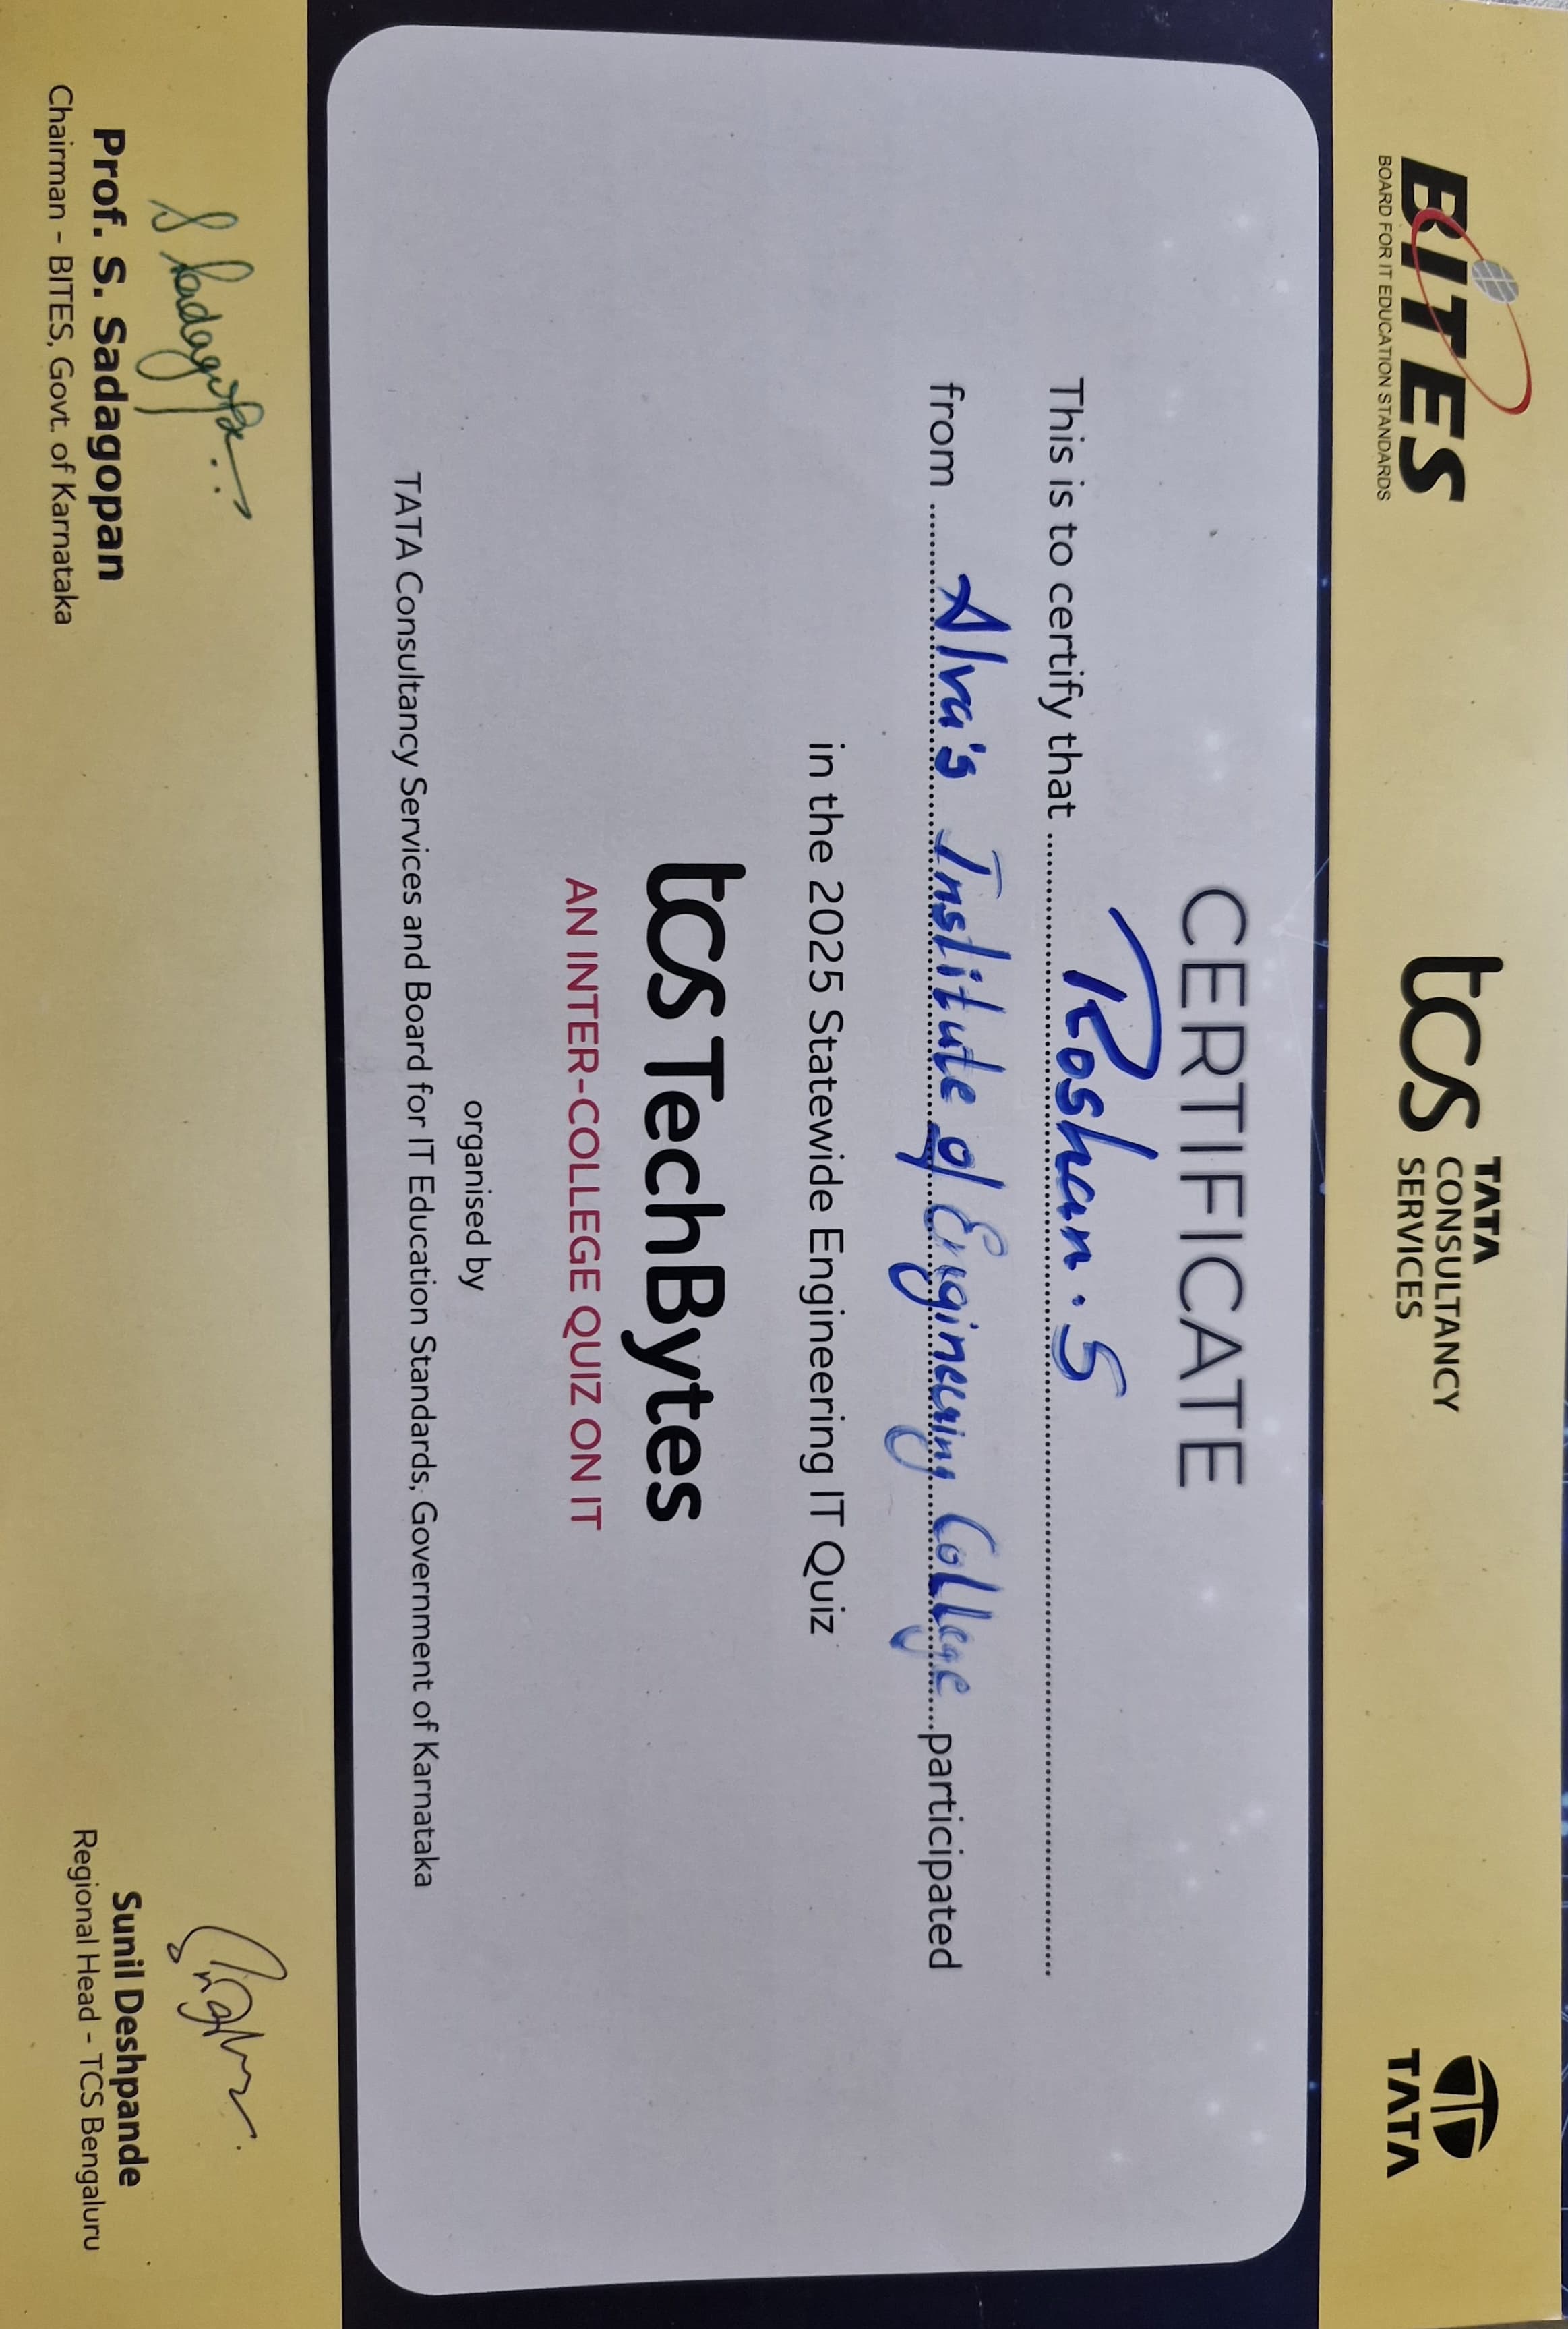 BITES
BOARD FOR IT EDUCATION STANDARDS
tcs TATA CONSULTANCY SERVICES
TATA
CERTIFICATE
This is to certify that Roshan. S
from Alva's Institute of Engineering College participated
in the 2025 Statewide Engineering IT Quiz
tcs TechBytes
AN INTER-COLLEGE QUIZ ON IT
organised by
TATA Consultancy Services and Board for IT Education Standards, Government of Karnataka
S Sadagopan
Prof. S. Sadagopan
Chairman - BITES, Govt. of Karnataka
Sunil Deshpande
Regional Head - TCS Bengaluru